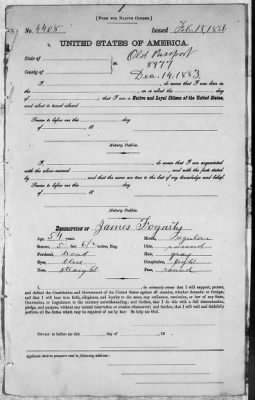 [FORM FOR NATIVE CITIZEN.]
No. 4408. Issued Feb. 18, 1886
UNITED STATES OF AMERICA.
State of Old Passport
County of 8977
Dec. 14. 1883
do swear that I was born in the
on or about the day of
; that I am a Native and Loyal Citizen of the United States,
and about to travel abroad
Sworn to before me this day
of 18
Notary Public.
do swear that I am acquainted
with the above-named and with the facts stated
by and that the same are true to the best of my knowledge and belief.
Sworn to before me this day
of 18
Notary Public.
DESCRIPTION OF James Fogarty
Age, 54 years. Mouth,
Stature, 5 feet, 6 1/2 inches, Eng. Chin, round
Forehead, broad Hair, gray
Eyes, blue Complexion, light
Nose, straight Face, round
do solemnly swear that I will support, protect,
and defend the Constitution and Government of the United States against all enemies, whether domestic or foreign;
and that I will bear true faith, allegiance, and loyalty to the same, any ordinance, resolution, or law of any State,
Convention, or Legislature to the contrary notwithstanding; and further, that I do this with a full determination,
pledge, and purpose, without any mental reservation or evasion whatsoever; and further, that I will well and faithfully
perform all the duties which may be required of me by law: So help me God.
Sworn to before me this day of 18
Applicant desires passport sent to following address: